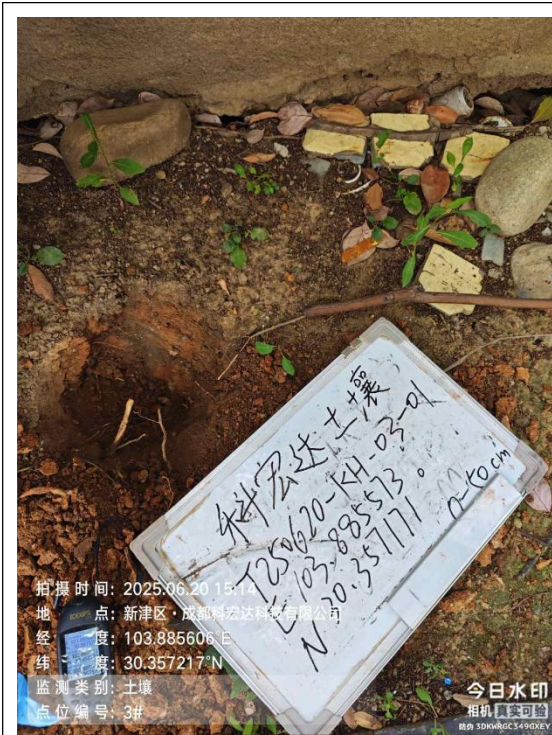 科宏达土壤
T250620-KH-03-01
E 103.885573°
N 30.357171°
0-50cm
拍摄时间：2025.06.20 15:14
地点：新津区·成都科宏达科技有限公司
经度：103.885606°E
纬度：30.357217°N
监测类别：土壤
点位编号：3#
今日水印
相机 真实可验
防伪 3DKWRGC349GXEY